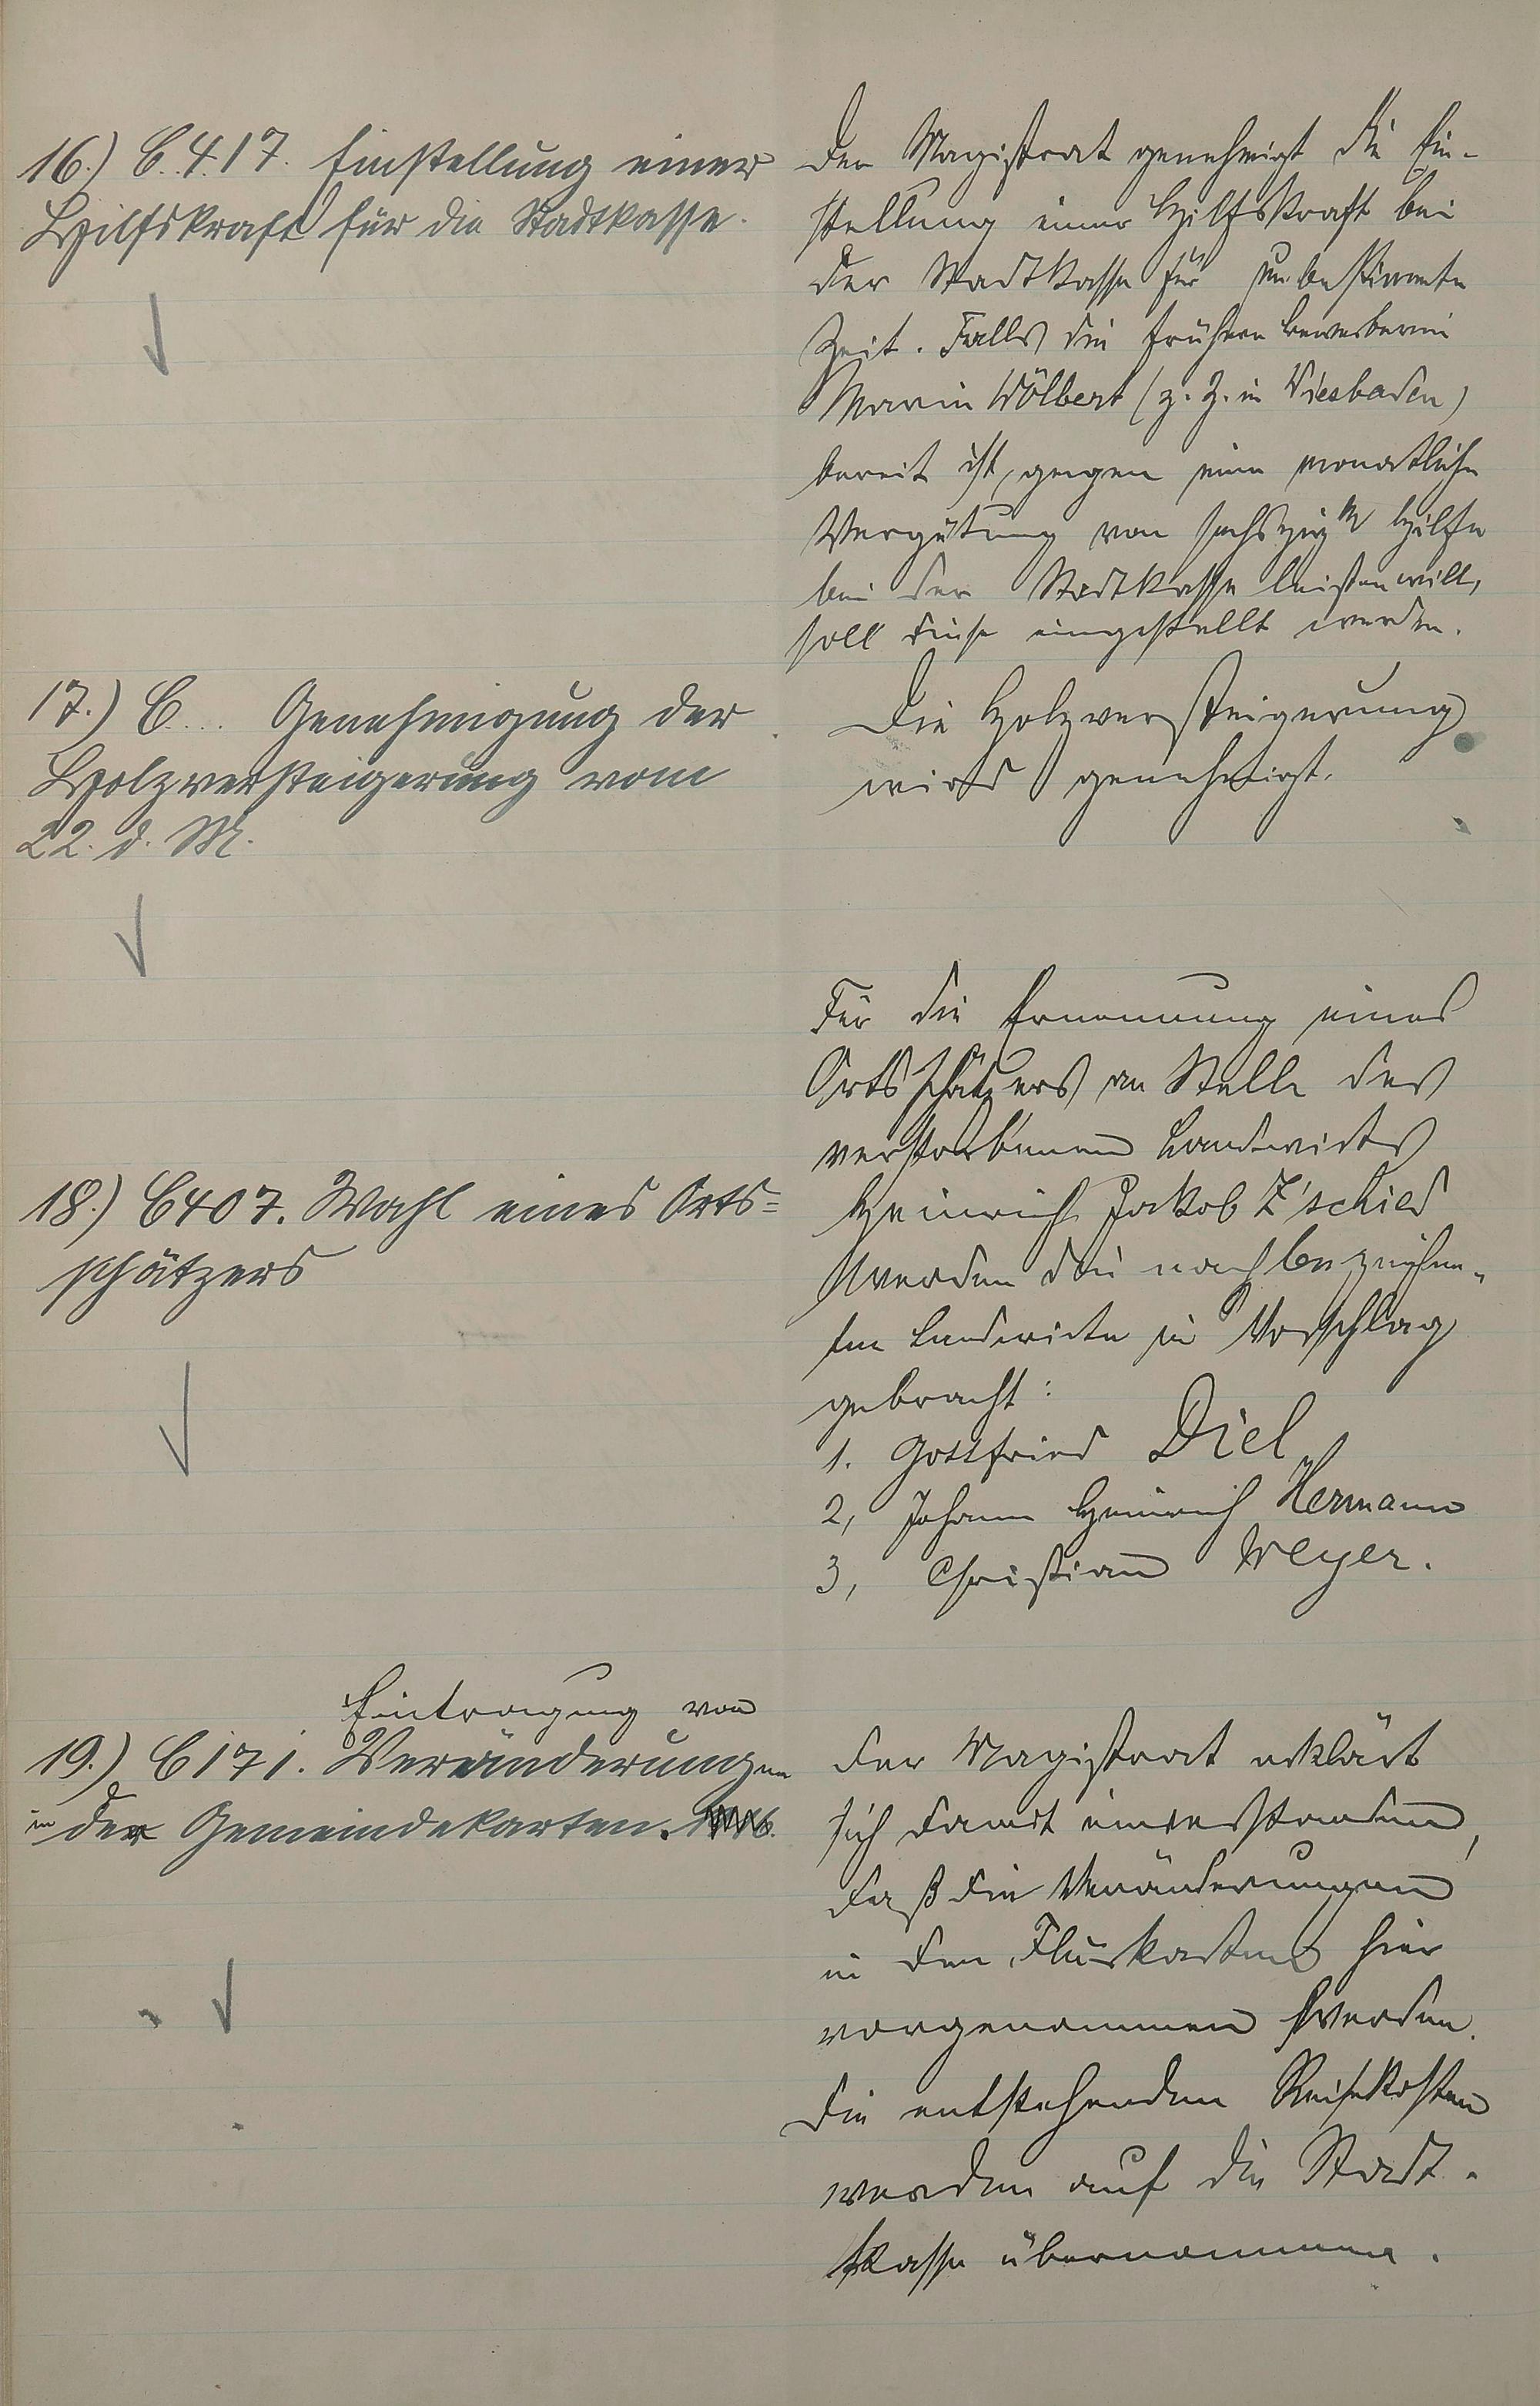 16.) C. 417. Einstellung einer
Hilfskraft für die Stadtkasse.
Der Magistrat genehmigt die Ein-
stellung einer Hilfskraft bei
der Stadtkasse für unbestimmte
Zeit. Falls die frühere Bewerberin
Marie Wölbert (z. Z. in Wiesbaden)
bereit ist, gegen eine monatliche
Vergütung von sechszig M Hilfe
bei der Stadtkasse leisten will,
soll diese eingestellt werden.
17.) C... Genehmigung der
Holzversteigerung vom
22. d. M.
Die Holzversteigerung
wird genehmigt.
18.) C 407. Wahl eines Orts=
schätzers
Für die Ernennung eines
Ortsschätzers an Stelle des
verstorbenen Landwirts
Heinrich Jakob Z'schied
werden die nachbezeichne-
ten Landwirte in Vorschlag
gebracht:
1. Gottfried Diel
2, Johann Heinrich Hermann
3, Christian Weyer.
Eintragung von
19.) C 171. Veränderungen
in der Gemeindekarten.
Der Magistrat erklärt
sich damit einverstanden,
daß die Veränderungen
in den Flurkarten hier
vorgenommen werden.
Die entstehenden Reisekosten
werden auf die Stadt-
kasse übernommen.